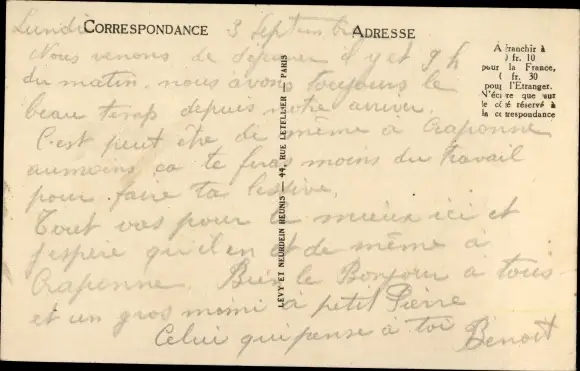 CORRESPONDANCE
ADRESSE
Affranchir à
0 fr. 10
pour la France,
0 fr. 30
pour l'Etranger.
N'écrire que sur
le côté réservé à
la correspondance
LÉVY ET NEURDEIN RÉUNIS — 44, RUE LETELLIER — PARIS
Lundi 3 Septembre
Nous venons de déjeuner il y et 9 h
du matin. nous avons toujours le
beau temp depuis notre arriver.
C'est peut être de même à Craponne
aumoins ça te fera moins du travail
pour faire ta lessive.
Tout vas pour le mieux ici et
j'espère qu'il en et de même à
Craponne. Bien le Bonjour à tous
et un gros mimi à petit Pierre
Celui qui pense à toi Benoit